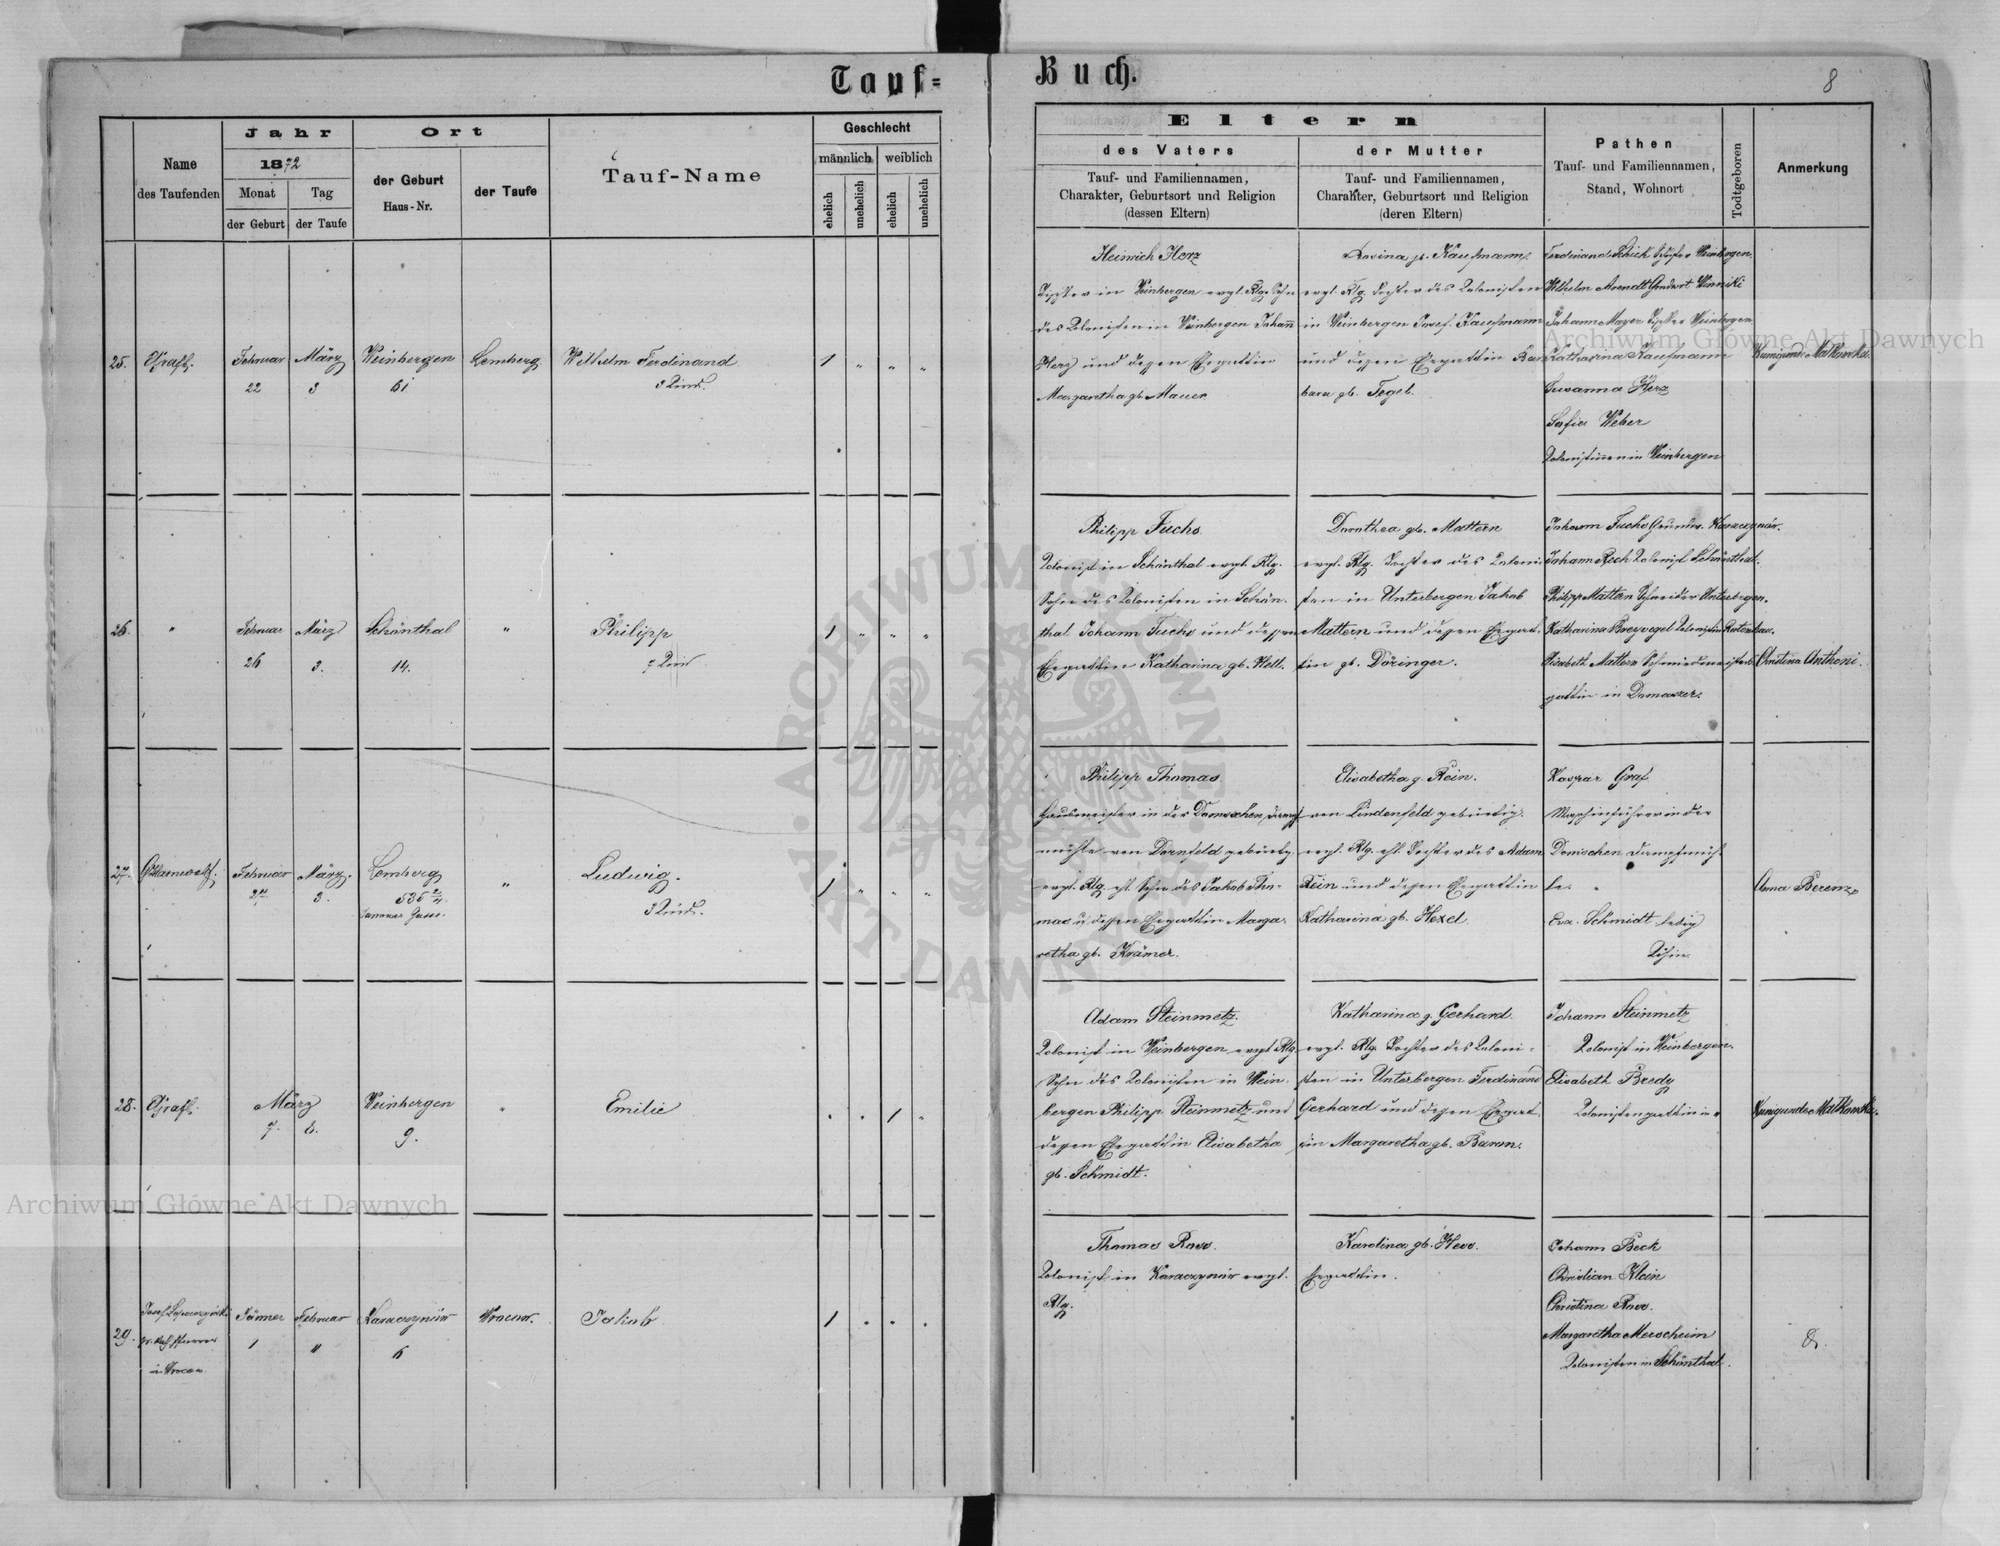 Tauf=
Buch.
8
Name
des Taufenden
Jahr
1872
Monat
der Geburt
Tag
der Taufe
Ort
der Geburt
Haus-Nr.
der Taufe
Tauf-Name
Geschlecht
männlich
weiblich
ehelich
unehelich
ehelich
unehelich
Eltern
des Vaters
Tauf- und Familiennamen,
Charakter, Geburtsort und Religion
(dessen Eltern)
der Mutter
Tauf- und Familiennamen,
Charakter, Geburtsort und Religion
(deren Eltern)
Pathen
Tauf- und Familiennamen,
Stand, Wohnort
Todtgeboren
Anmerkung
25.
Februar
22
März
3
Weinbergen
61
Lemberg
Wilhelm Ferdinand
3 Kind.
1 " " "
Heinrich Herz
in Weinbergen evgl. Rlg. Sohn
des Kolonisten in Weinbergen Johann
Herz und dessen Ehegattin
Margaretha gb. Mauer
Kaufmann
evgl. Rlg. Tochter des Kolonisten
in Weinbergen Josef Kaufmann
und dessen Ehegattin Bar-
bara gb. Tegel.
Ferdinand Schick Weinbergen.
Wilhelm Arendt Winniki
Johann Mayer Weinbergen
Katharina Kaufmann
Susanna Herz
Sofia Weber
Kolonistinnen in Weinbergen
Kunigunde Malkowska.
26.
"
Februar
26
März
3.
Schönthal
14.
"
Philipp
Kind
1 " " "
Philipp Fuchs
Kolonist in Schönthal evgl. Rlg.
Sohn des Kolonisten in Schön-
thal Johann Fuchs und dessen
Ehegattin Katharina gb. Kell.
Dorothea gb. Mattern
evgl. Rlg. Tochter des Koloni-
sten in Unterbergen Jakob
Mattern und dessen Ehegat-
tin gb. Döringer.
Johann Fuchs
Johann Rech Kolonist Schönthal.
Philipp Mattern Schneider Unterbergen.
Katharina
Elisabeth Mattern Schmiedmeisters-
gattin in
Christina Anthoni.
27.
Februar
27.
März.
3.
Lemberg
535 2/4.
Janower Gasse.
"
Ludwig.
3 Kind.
1 " " "
Philipp Thomas
Hausmeister in der Dampf-
mühle von Dornfeld gebürtig.
evgl. Rlg. ehl. Sohn des Jakob Tho-
mas u. dessen Ehegattin Marga-
retha gb. Krämer.
Elisabetha g. Rein.
von Lindenfeld gebürtig.
evgl. Rlg. ehl. Tochter des Adam
Rein und dessen Ehegattin
Katharina gb. Hexel
Kaspar Graf
Maschinführer in der
Domschen Dampfmüh-
le.
Eva Schmidt ledig
Köchin.
Anna Berenz
28.
März
7. 6.
Weinbergen
9.
"
Emilie
. . 1 "
Adam Steinmetz.
Kolonist in Weinbergen evgl. Rlg.
Sohn des Kolonisten in Wein-
bergen Philipp Steinmetz und
dessen Ehegattin Elisabetha
gb. Schmidt.
Katharina g. Gerhard.
evgl. Rlg. Tochter des Koloni-
sten in Unterbergen Ferdinand
Gerhard und dessen Ehegat-
tin Margaretha gb. Baron.
Johann Steinmetz
Kolonist in Weinbergen.
Elisabeth Bredy
Kolonistengattin
Kunigunde Malkowska.
29.
Josef
in Wrocow
Jänner
1
Februar
11
Karaczynów
6
Wrocow.
Jakob
1 . . .
Thomas Roos.
Kolonist in Karaczynów evgl.
Rlg.
Karolina gb. Hess.
Ehegattin.
Johann Beck
Christian Klein
Christina Roos.
Margaretha Merscheim
Kolonisten in Schönthal.
Archiwum Główne Akt Dawnych
Archiwum Główne Akt Dawnych